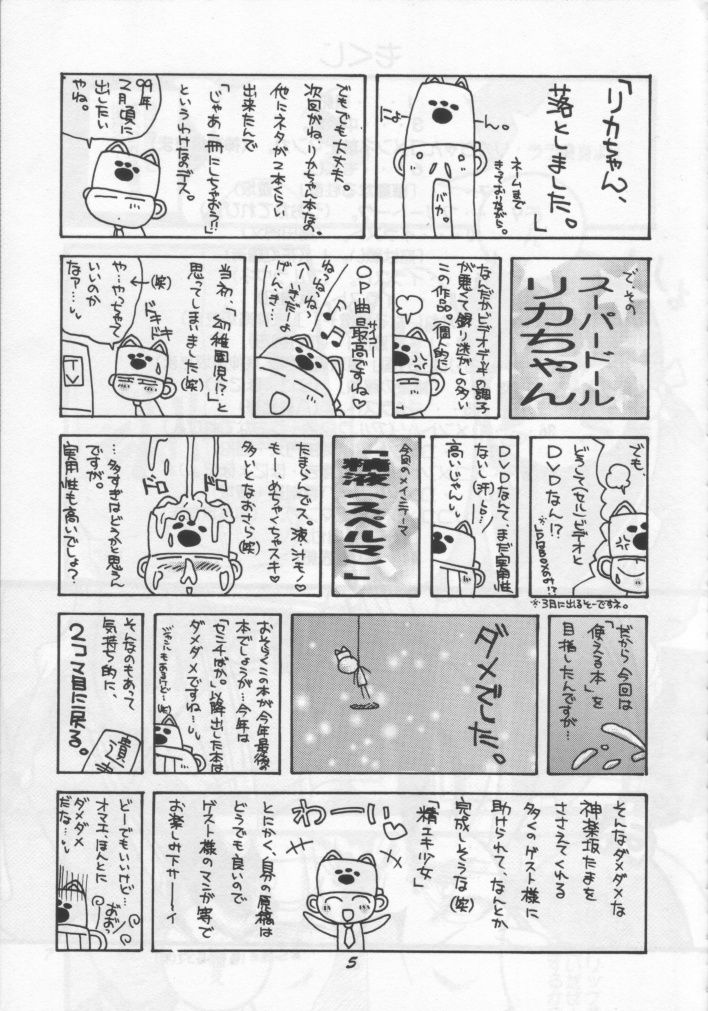 「リカちゃん、
落としました。」
ん。
バカ。
でもでも大丈夫。
次回がね、リカちゃん本なの。
他にネタが2本くらい
出来たんで
「じゃあ一冊にしちゃおう!!」
というわけなのデス。
99年
2月頃に
出したい
やね。
で、その
スーパードール
リカちゃん
なんだかビデオデッキの調子
が悪くて録り逃がしの多い
この作品。個人的に
OP曲最高ですね♡
サイコー
ねっねっねっ
当初…「幼稚園児!?」と
思ってしまいました(笑)
(笑)
や…やっちゃって
いいのか
なァ…
ドキドキ
でも、
どうして(セル)ビデオと
DVDなん!?
※3月に出るそーですネ。
DVDなんて、まだ実用性
ないし(汗)…
高いじゃん
今回のメインテーマ
「精液(スペルマ)」
たまらんデス。液・汁モノ♡
もー、めちゃくちゃスキ♡
多いとなおさら(笑)
ドロドロ
…多すぎはどうかと思うん
ですが。
実用性も高いでしょ?
だから今回は
「使える本」を
目指したんですが…
ダメでした。
おそらくこの本が今年最後の
本でしょうが…今年は
「セミナばか。」以降出した本は
ダメダメですね…
そんなのもあって
気持ち的に、
2コマ目に戻る。
そんなダメダメな
神楽坂たまを
ささえてくれる
多くのゲスト様に
助けられて、なんとか
完成しそうな(笑)
「精エキ少女」
わーい
とにかく、自分の原稿は
どうでも良いので
ゲスト様のマンガ等で
お楽しみ下サーイ
どーでもいいけど…
オマエ、ほんとに
ダメダメ
だな…
おおっ
5